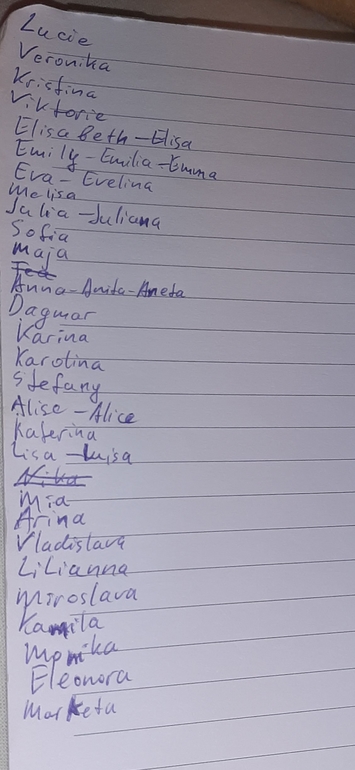 Lucie
Veronika
Kristina
Viktorie
Elisabeth - Elisa
Emily - Emilia - Emma
Eva - Evelina
Melisa
Julia - Juliana
Sofia
Maja
Anna - Anita - Aneta
Dagmar
Karina
Karolina
Stefany
Alise - Alice
Katerina
Lisa - Luisa
Nika
Mia
Arina
Vladislava
LiLianna
Miroslava
Kamila
Monika
Eleonora
Marketa